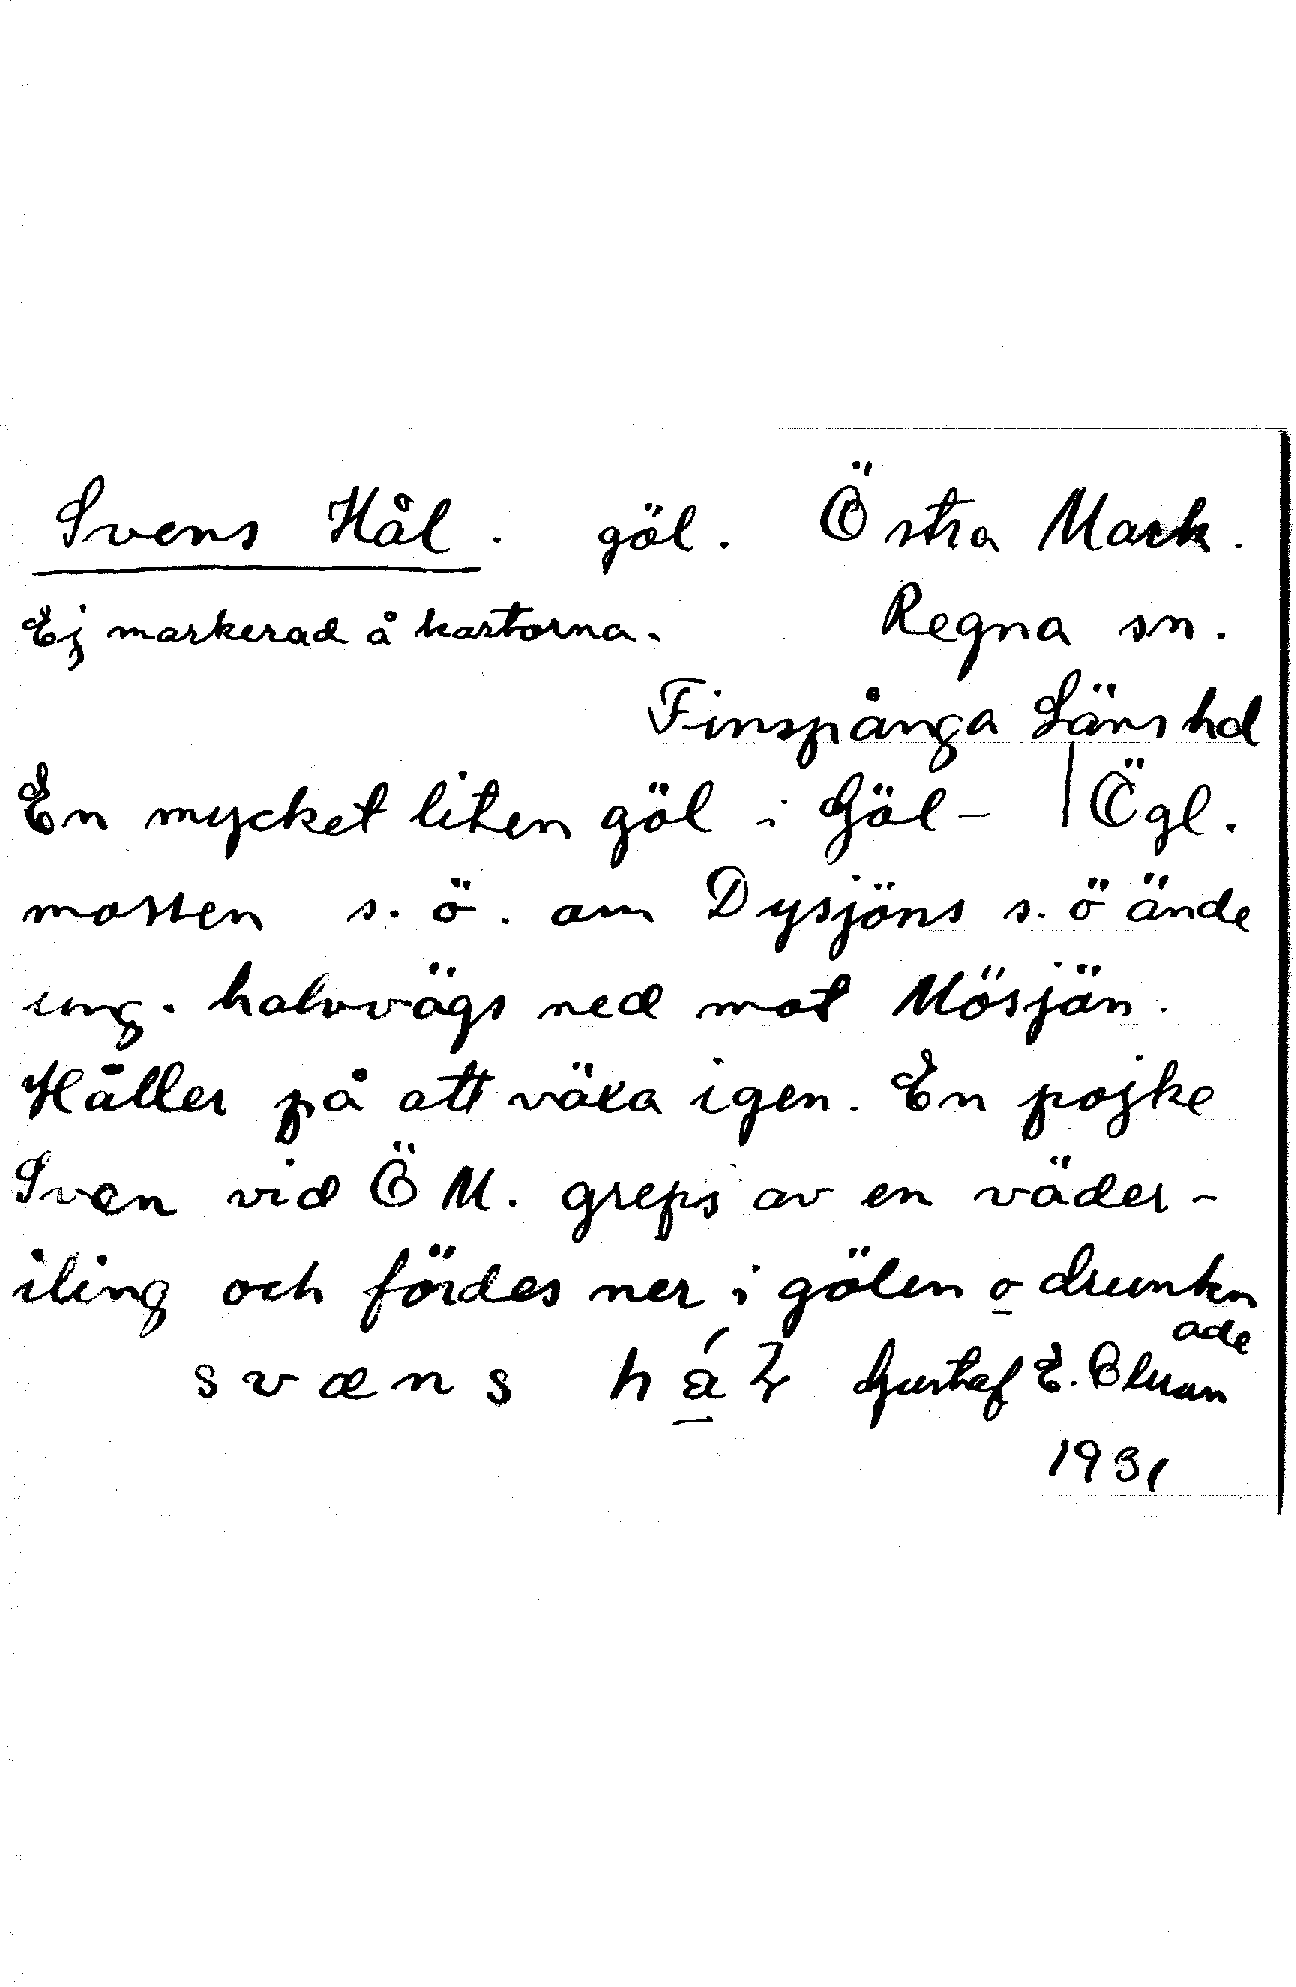 Svens Hål. göl. Östra Mark.
Ej markerad å kartorna. Regna sn.
Finspånga Läns hd
En mycket liten göl i Göl- | Ögl.
mossen s. ö. om Dysjöns s. ö ände
ung. halvvägs ned mot Mösjön.
Håller på att växa igen. En pojke
Sven vid Ö M. greps av en väder-
iling och fördes ner i gölen o drunkn
ade
svæns Gustaf E.
1931